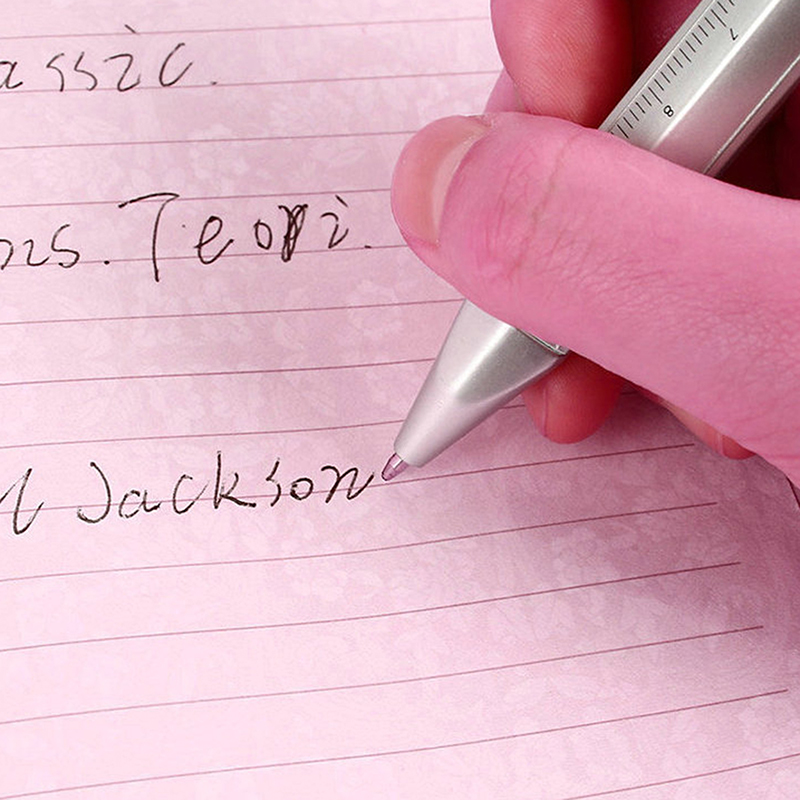 assic.
ns. Teori.
l Jackson
7
8